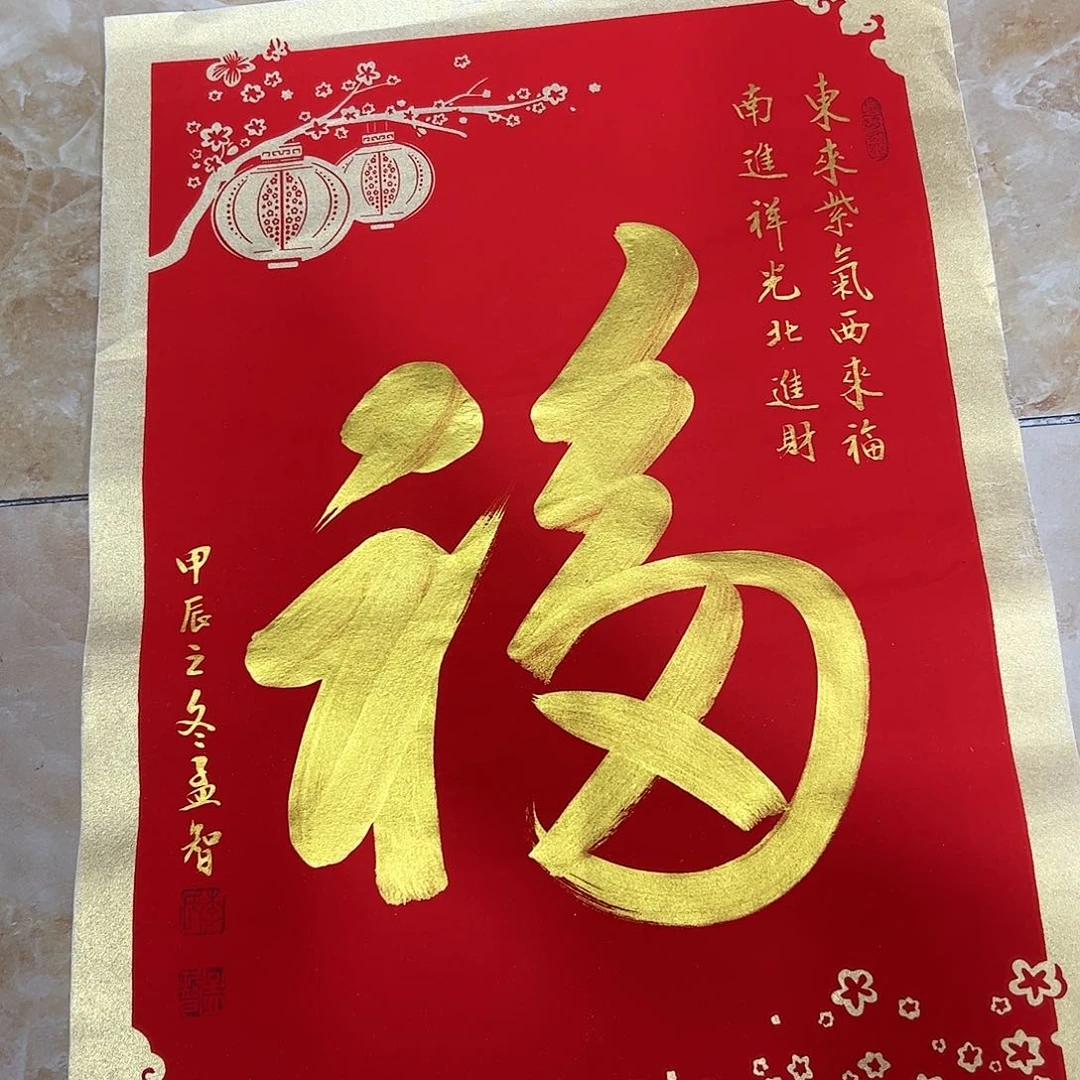 東來紫氣西來福
南進祥光北進財
福
甲辰之冬孟智